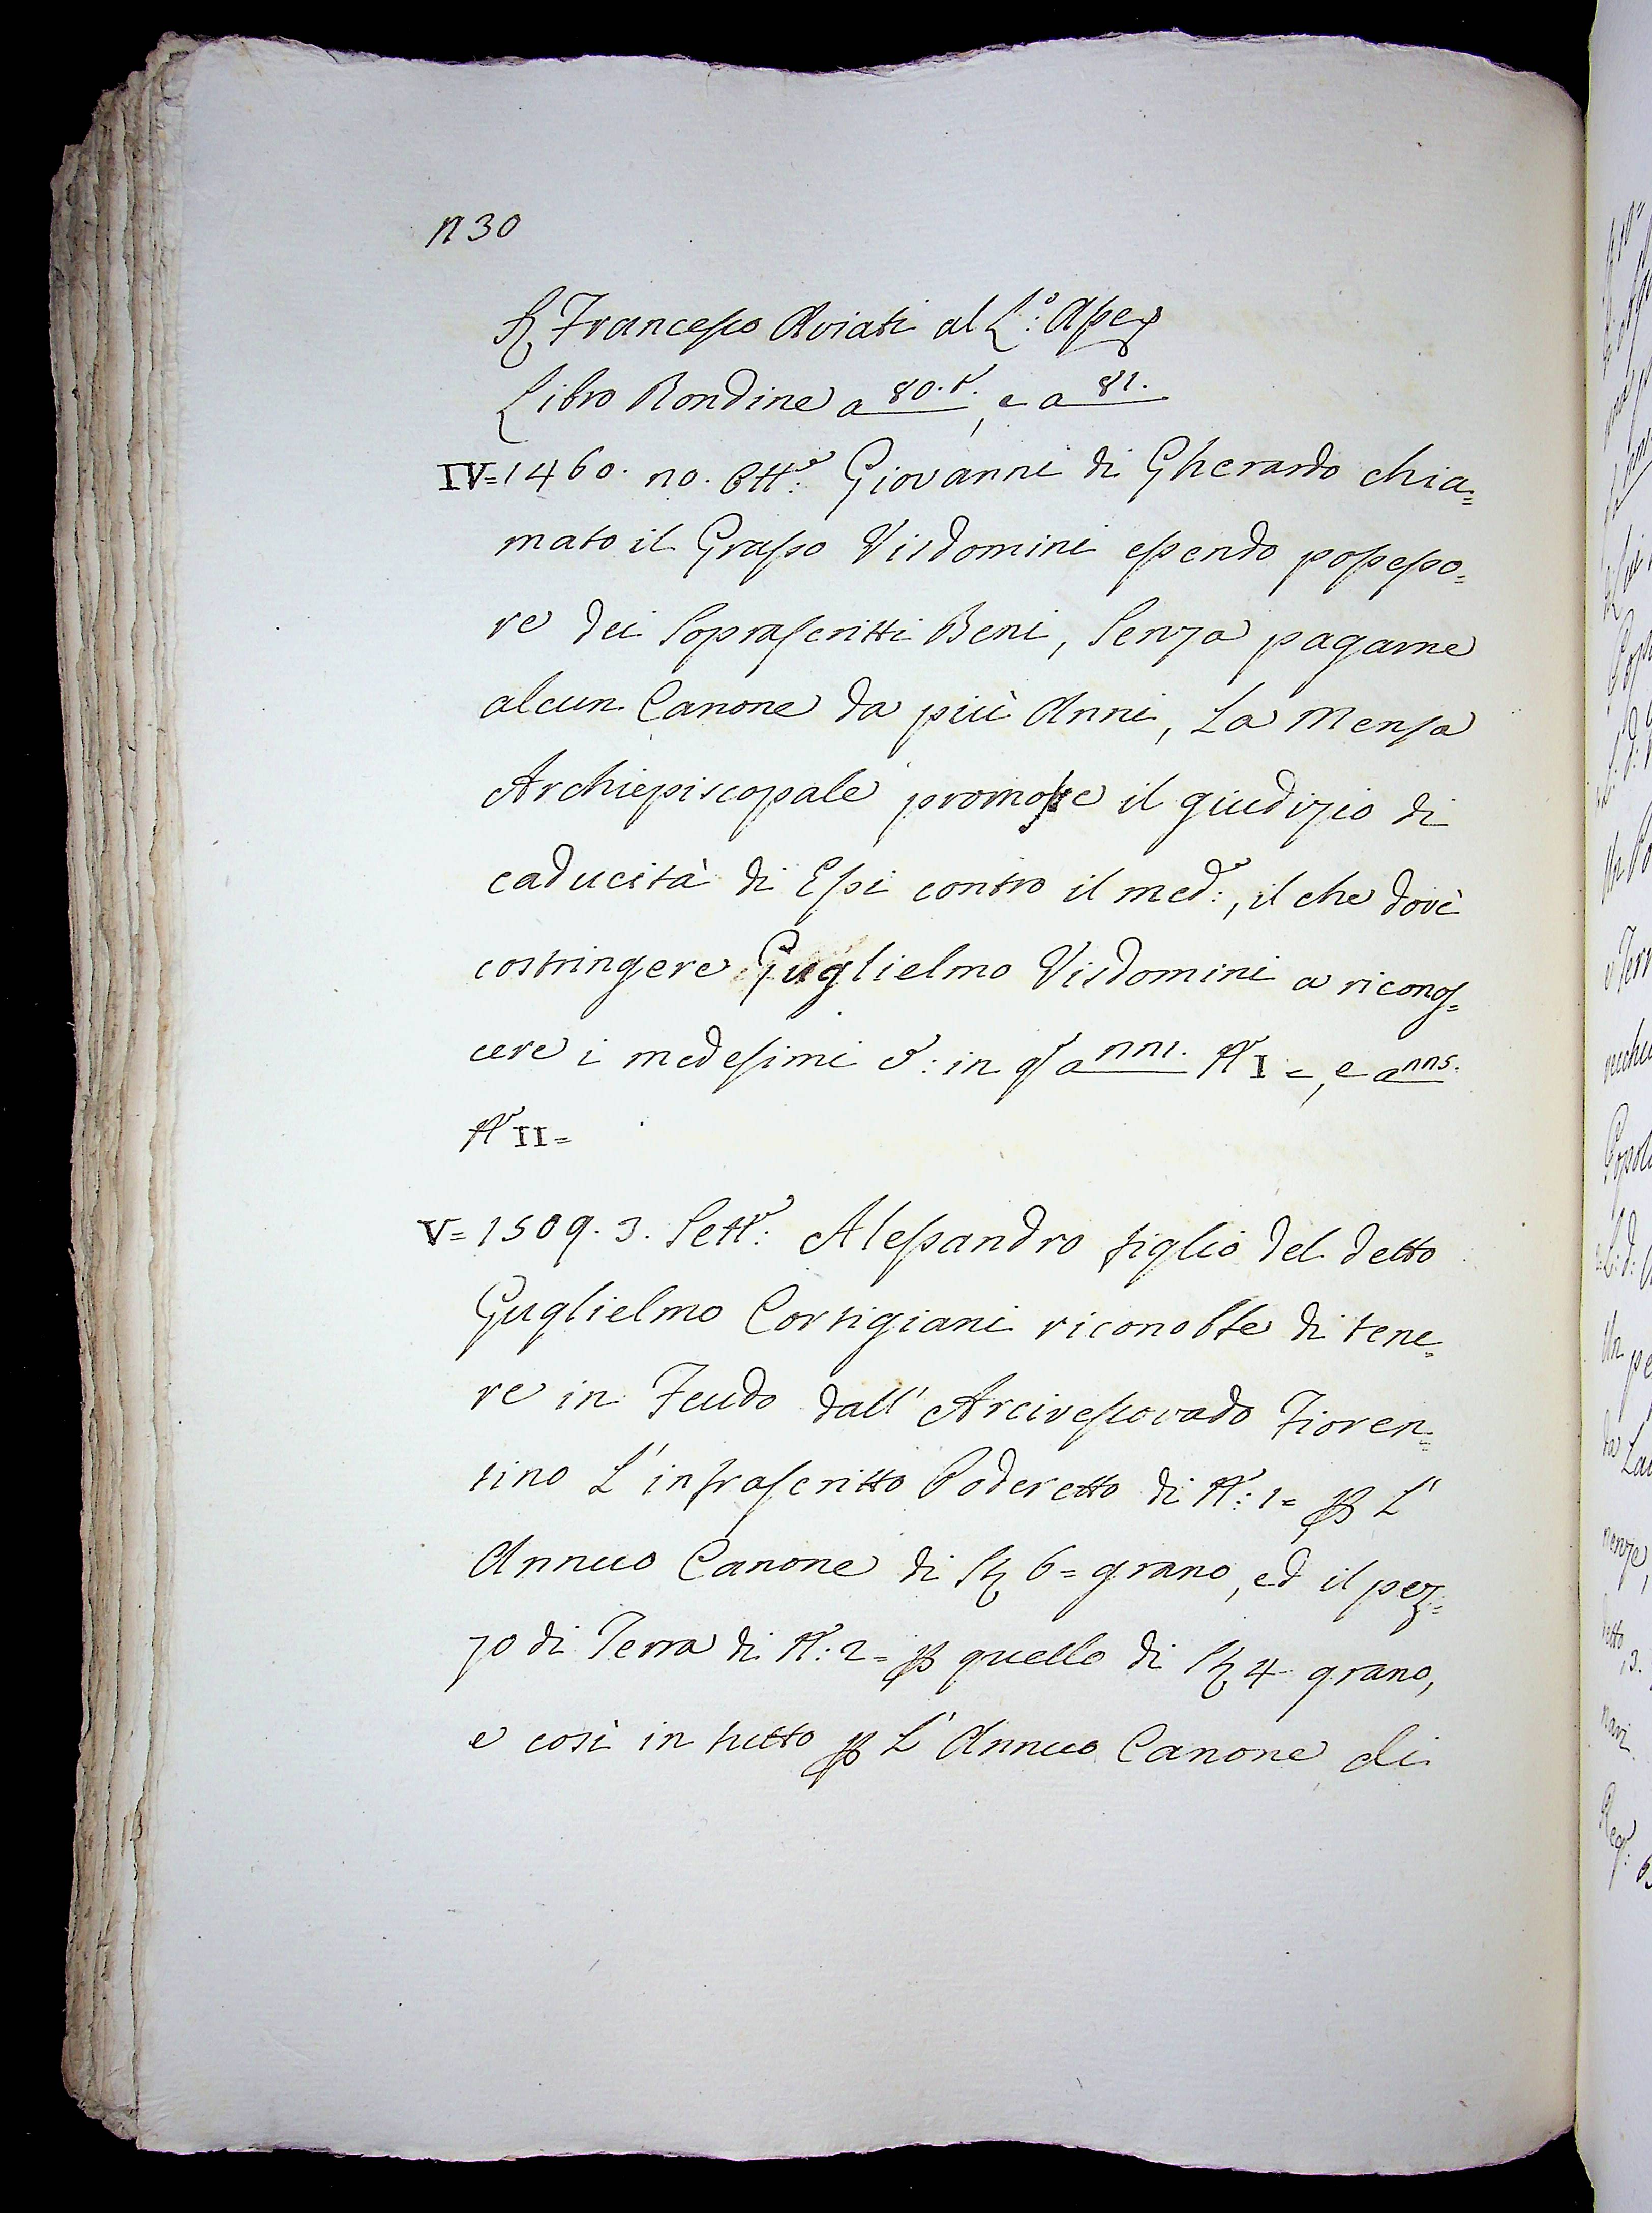 1130
Sr Francesco Aviati al L.o: Apex
Libro Rondine a 80.t, e a 81.
IV=1460. 10. Ott.e: Giovanni di Gherardo chia=
mato il Grasso Visdomini essendo possesso=
re dei soprascritti Beni, senza pagarne
alcun Canone da più Anni, La Mensa
Archiepiscopale promosse il giudizio di
caducità di Essi contro il med.o:, il che dovè
costringere Guglielmo Visdomini a riconos=
cere i medesimi &: in q.o a 1111. N.o I=, e a 1115.
N.o II=
V=1509. 3. Sett.e: Alessandro figlio del detto
Guglielmo Cortigiani riconobbe di tene=
re in Feudo dall' Arcivescovado Fioren=
tino L' infrascritto Poderetto di N.o: 1= p L'
Annuo Canone di St 6= grano, ed il pez=
zo di Terra di N.o: 2= p quello di St 4 grano,
e così in tutto p L' Annuo Canone di